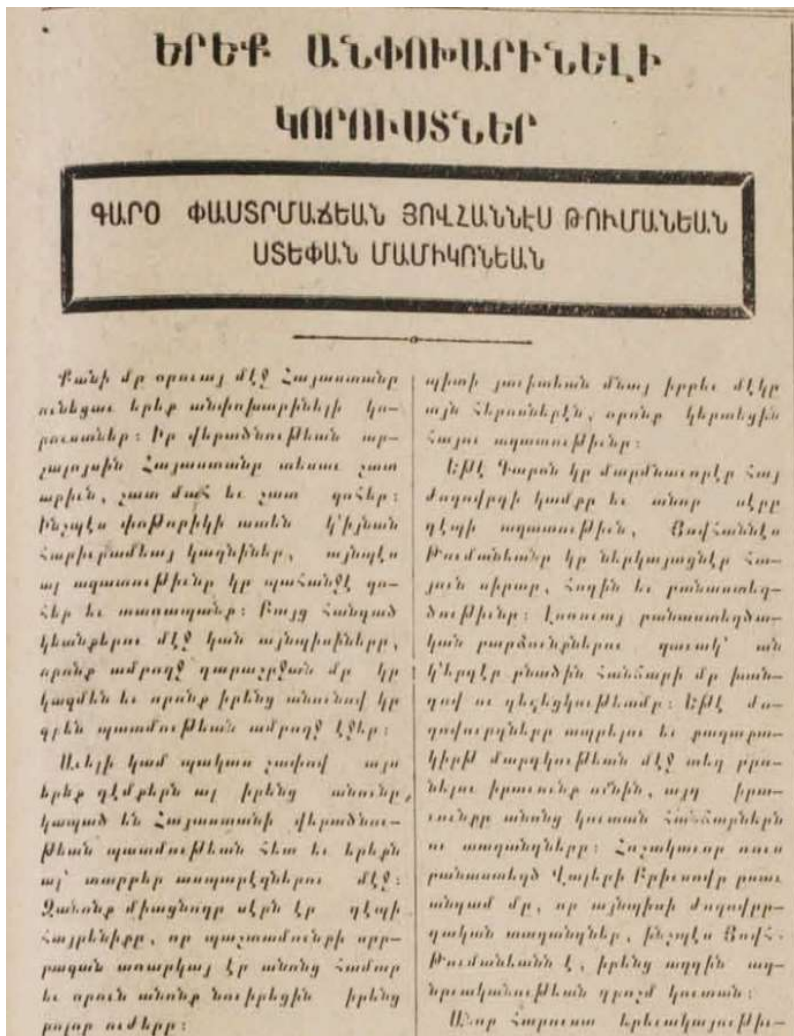 ԵՐԵՔ ԱՆՓՈԽԱՐԻՆԵԼԻ
ԿՈՐՈՒՍՏՆԵՐ
ԳԱՐՕ ՓԱՍՏՐՄԱՃԵԱՆ ՅՈՎՀԱՆՆԷՍ ԹՈՒՄԱՆԵԱՆ
ՍՏԵՓԱՆ ՄԱՄԻԿՈՆԵԱՆ
Քանի մը օրուայ մէջ Հայաստանը
ունեցաւ երեք անփոխարինելի կո-
րուստներ։ Իր վերածնութեան ար-
շալոյսին Հայաստանը տեսաւ շատ
արիւն, շատ մահ եւ շատ զոհեր։
Ինչպէս փոթորիկի ատեն կ՚իյնան
հարիւրամեայ կաղնիներ, այնպէս
ալ ազատութիւնը կը պահանջէ զո-
հեր եւ տառապանք։ Բայց հանգած
կեանքերու մէջ կան այնպիսիները,
որոնք ամբողջ դարաշրջան մը կը
կազմեն եւ որոնք իրենց անունով կը
գրեն պատմութեան ամբողջ էջեր։
Աւելի կամ պակաս չափով այս
երեք դէմքերն ալ իրենց անունը
կապած են Հայաստանի վերածնու-
թեան պատմութեան հետ եւ երեքն
ալ՝ տարբեր ասպարէզներու մէջ։
Զանոնք միացնողը սէրն էր դէպի
Հայրենիքը, որ պաշտամունքի սրբ-
բազան առարկայ էր անոնց համար
եւ որուն անոնք նուիրեցին իրենց
բոլոր ուժերը։
պիտի յաւիտեան մնայ իբրեւ մէկը
այն հերոսներէն, որոնք կերտեցին
Հայու ազատութիւնը։
Եթէ Գարոն կը մարմնաւորէր Հայ
ժողովրդի կամքը եւ անոր սէրը
դէպի ազատութիւն, Յովհաննէս
Թումանեանը կը ներկայացնէր Հա-
յուն սիրտը, հոգին եւ բանաստեղ-
ծութիւնը։ Լոռուայ բանաստեղծա-
կան բարձունքներու զաւակ՝ ան
կ՚երգէր բնածին հանճարի մը խան-
դով ու գեղեցկութեամբ։ Եթէ ժո-
ղովուրդները ապրելու եւ քաղաքա-
կիրթ մարդկութեան մէջ տեղ բռ-
նելու իրաւունք ունին, այդ իրա-
ւունքը անոնց կուտան հանճարներն
ու տաղանդները։ Հռչակաւոր ռուս
բանաստեղծ Վալերի Բրիւսովը ըսաւ
անգամ մը, որ այնպիսի ժողովրդ-
դական տաղանդներ, ինչպէս Յովհ.
Թումանեանն է, իրենց ազգին ազ-
նըւականութեան դրոշմ կուտան։
Անոր հարուստ երեւակայութիւ-